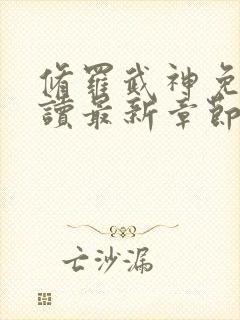 脩羅武神免
讀最新章節
亡沙漏